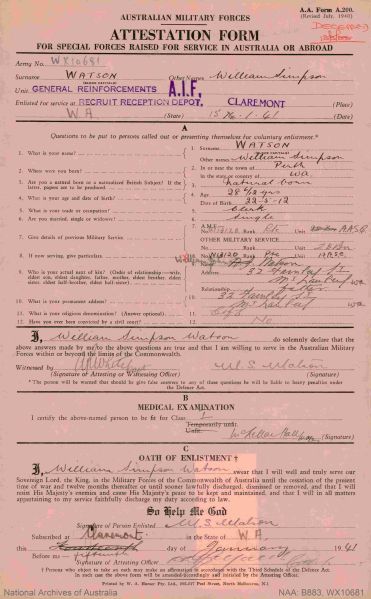 A.A. Form A.200.
(Revised July, 1940)
AUSTRALIAN MILITARY FORCES
DECEASED
ATTESTATION FORM
FOR SPECIAL FORCES RAISED FOR SERVICE IN AUSTRALIA OR ABROAD
Army No. WX10681
Surname WATSON Other Names William Simpson
(BLOCK CAPITALS)
Unit GENERAL REINFORCEMENTS A.I.F.
Enlisted for service at RECRUIT RECEPTION DEPOT. CLAREMONT (Place)
W.A (State) 15 . 1 . 41
A
Questions to be put to persons called out or presenting themselves for voluntary enlistment.*
1. What is your name?
1. Surname WATSON
(BLOCK CAPITALS)
Other names William Simpson
2. Where were you born?
2. In or near the town of Perth
in the state or country of WA
3. Are you a natural born or a naturalized British Subject? If the latter, papers are to be produced
3. natural born
4. What is your age and date of birth?
4. Age 28
Date of Birth 22-5-12
5. What is your trade or occupation?
5. clerk
6. Are you married, single or widower?
6. Single
7. Give details of previous Military Service
7. A.M.F.
No. Rank Pte Unit AASC
OTHER MILITARY SERVICE.
8. If now serving, give particulars
8. No. Rank Pte Unit
9. Who is your actual next of kin? (Order of relationship:—wife, eldest son, eldest daughter, father, mother, eldest brother, eldest sister, eldest half-brother, eldest half-sister)
9. Name Watson
Address 32
WA
Relationship Father
10. What is your permanent address?
10. 32
WA
11. What is your religious denomination? (Answer optional)
11. C of E
12. Have you ever been convicted by a civil court?
12. No
I, William Simpson Watson do solemnly declare that the
above answers made by me to the above questions are true and that I am willing to serve in the Australian Military
Forces within or beyond the limits of the Commonwealth.
Witnessed by W.S. Watson
(Signature of Attesting or Witnessing Officer) (Signature)
* The person will be warned that should he give false answers to any of these questions he will be liable to heavy penalties under
the Defence Act.
B
MEDICAL EXAMINATION
I certify the above-named person to be fit for Class I
Temporarily unfit
Unfit.
(Signature)
C
OATH OF ENLISTMENT †
I, William Simpson Watson swear that I will well and truly serve our
Sovereign Lord, the King, in the Military Forces of the Commonwealth of Australia until the cessation of the present
time of war and twelve months thereafter or until sooner lawfully discharged, dismissed or removed, and that I will
resist His Majesty's enemies and cause His Majesty's peace to be kept and maintained, and that I will in all matters
appertaining to my service faithfully discharge my duty according to law.
So Help Me God
Signature of Person Enlisted W.S. Watson
Subscribed at Claremont in the State of W.A.
this Fourteenth day of January 1941
Before me— fifteenth
Signature of Attesting Officer
† Persons who object to take an oath may make an affirmation in accordance with the Third Schedule of the Defence Act.
In such case the above form will be amended accordingly and initialed by the Attesting Officer.
National Archives of Australia
NAA: B883, WX10681